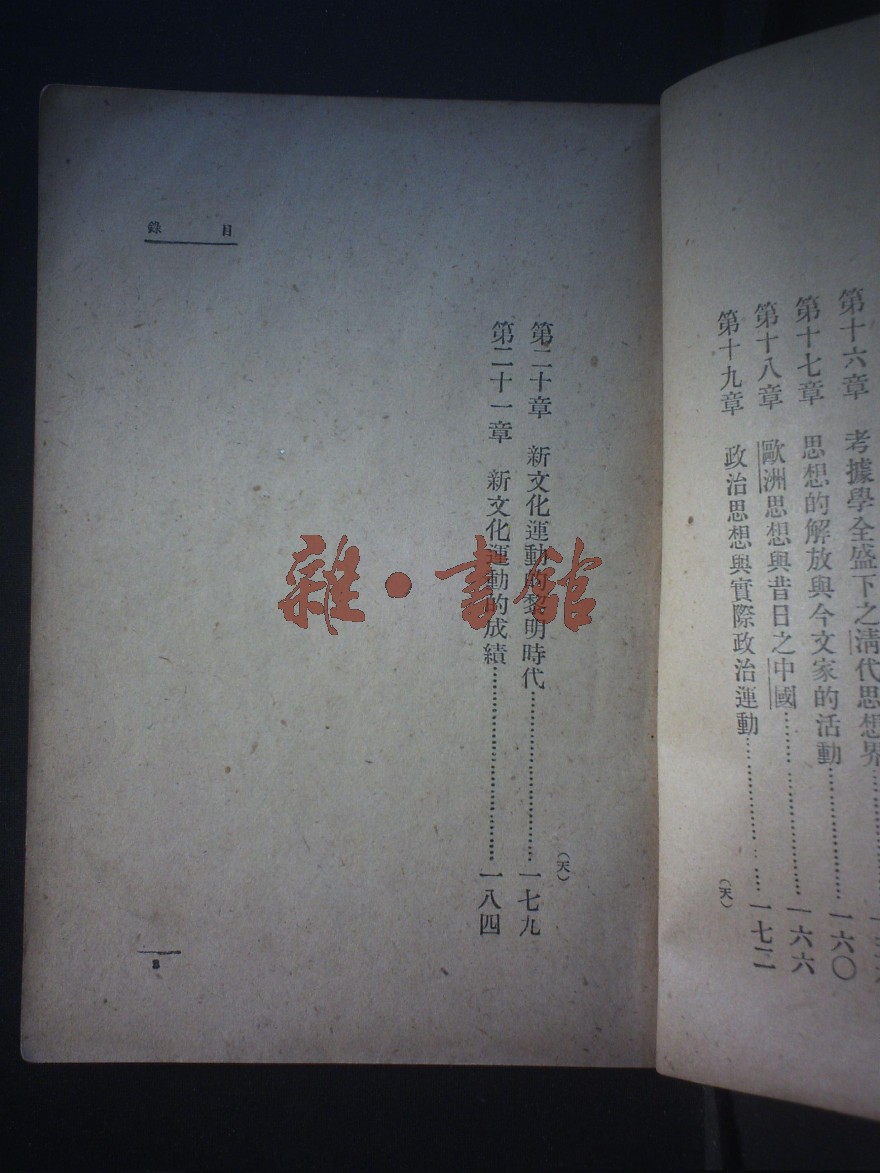 第十六章　考據學全盛下之清代思想界
第十七章　思想的解放與今文家的活動……一六〇
第十八章　歐洲思想與昔日之中國……一六六
第十九章　政治思想與實際政治運動……一七二
（天）
目錄
第二十章　新文化運動的黎明時代……一七九
第二十一章　新文化運動的成績……一八四
（天）
雜·書館